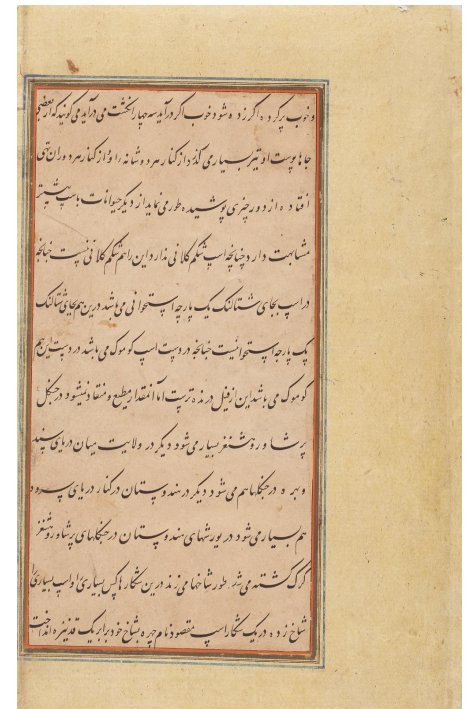 و خوب پر کرده اگر زده شود خوب اگر درآید سه چهار انکشت می درآید می کویند که از بعضی
جاها پوست او تیر بسیار می کذرد از کنار هر دو شانه او و از کنار هر دو ران تهی
افتاده از دور چیزی پوشیده طور می نماید از دیگر حیوانات باسپ بیشتر
مشابهت دارد چنانچه اسپ شکم کلانی ندارد این را هم شکم کلانی نیست چنانچه
در اسپ بجای شتالنک یک پارچه استخوانی می باشد درین هم بجای شتالنک
یک پارچه استخوانیست چنانچه در دست اسپ کوموک می باشد در دست این هم
کوموک می باشد این از فیل درنده ترست اما آنمقدار مطیع و منقاد نمیشود در جنکل
پرشاور و هشنغر بسیار می شود دیگر در ولایت میان دریای سند
و بهره در جنکلها هم می شود دیگر در هندوستان در کنار دریای سرود
هم بسیار می شود در یورشهای هندوستان در جنکلهای پرشاور و هشنغر
کرک کشته می شد طور شاخها می زند درین شکارها کس بسیاری را و اسپ بسیاری را
شاخ زده در یک شکار اسپ مقصود نام چهره بشاخ خود برابر یک قد نیزه انداخت